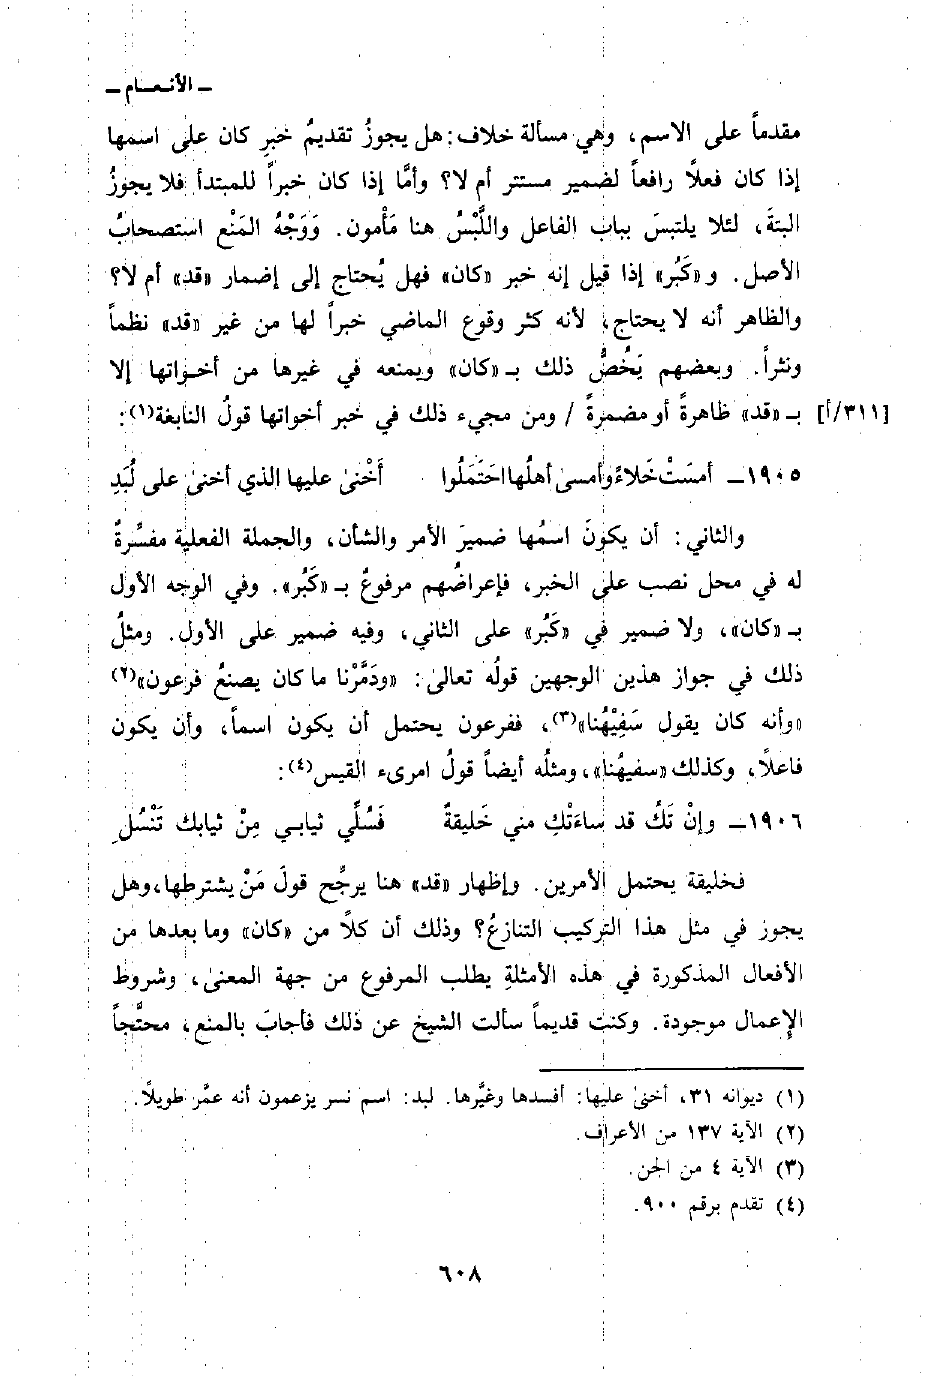 ـ الأنعـام ـ
مقدماً على الاسم، وهي مسألة خلاف: هل يجوزُ تقديمُ خبرِ كان على اسمها
إذا كان فعلًا رافعاً لضمير مستتر أم لا؟ وأمَّا إذا كان خبراً للمبتدأ فلا يجوزُ
البتةَ، لئلا يلتبسَ بباب الفاعل واللَّبْسُ هنا مَأْمون. وَوَجْهُ المَنْع استصحابُ
الأصل. و «كَبُر» إذا قيل إنه خبر «كان» فهل يُحتاج إلى إضمار «قد» أم لا؟
والظاهر أنه لا يحتاج، لأنه كثر وقوع الماضي خبراً لها من غير «قد» نظماً
ونثراً. وبعضهم يَخُصُّ ذلك بـ «كان» ويمنعه في غيرها من أخـواتها إلا
[٣١١/أ] بـ «قد» ظاهرةً أو مضمرةً / ومن مجيء ذلك في خبر أخواتها قولُ النابغة(١):
١٩٠٥ـ أمسَتْ خَلاءً وأمسى أهلُها احتَمَلُوا أَخْنىٰ عليها الذي أخنىٰ على لُبَدِ
والثاني: أن يكونَ اسمُها ضميرَ الأمر والشأن، والجملة الفعلية مفسِّرةٌ
له في محل نصب على الخبر، فإعراضُهم مرفوعٌ بـ «كَبُر». وفي الوجه الأول
بـ «كان»، ولا ضمير في «كَبُر» على الثاني، وفيه ضمير على الأول. ومثلُ
ذلك في جواز هذين الوجهين قولُه تعالى: «ودَمَّرْنا ما كان يصنعُ فرعون»(٢)
«وأنه كان يقول سَفِيْهُنا»(٣)، ففرعون يحتمل أن يكون اسماً، وأن يكون
فاعلًا، وكذلك «سفيهُنا»، ومثلُه أيضاً قولُ امرىء القيس(٤):
١٩٠٦ـ وإنْ تَكُ قد ساءَتْكِ مني خَليقةٌ فَسُلِّي ثيابـي مِنْ ثيابك تَنْسُلِ
فخليقة يحتمل الأمرين. وإظهار «قد» هنا يرجِّح قولَ مَنْ يشترطها، وهل
يجوز في مثل هذا التركيب التنازعُ؟ وذلك أن كلًا من «كان» وما بعدها من
الأفعال المذكورة في هذه الأمثلةِ يطلب المرفوع من جهة المعنىٰ، وشروط
الإِعمال موجودة. وكنت قديماً سألت الشيخ عن ذلك فأجابَ بالمنع، محتجَّاً
(١) ديوانه ٣١، أخنىٰ عليها: أفسدها وغيَّرها. لبد: اسم نسر يزعمون أنه عمَّر طويلًا.
(٢) الآية ١٣٧ من الأعراف.
(٣) الآية ٤ من الجن.
(٤) تقدم برقم ٩٠٠.
٦٠٨